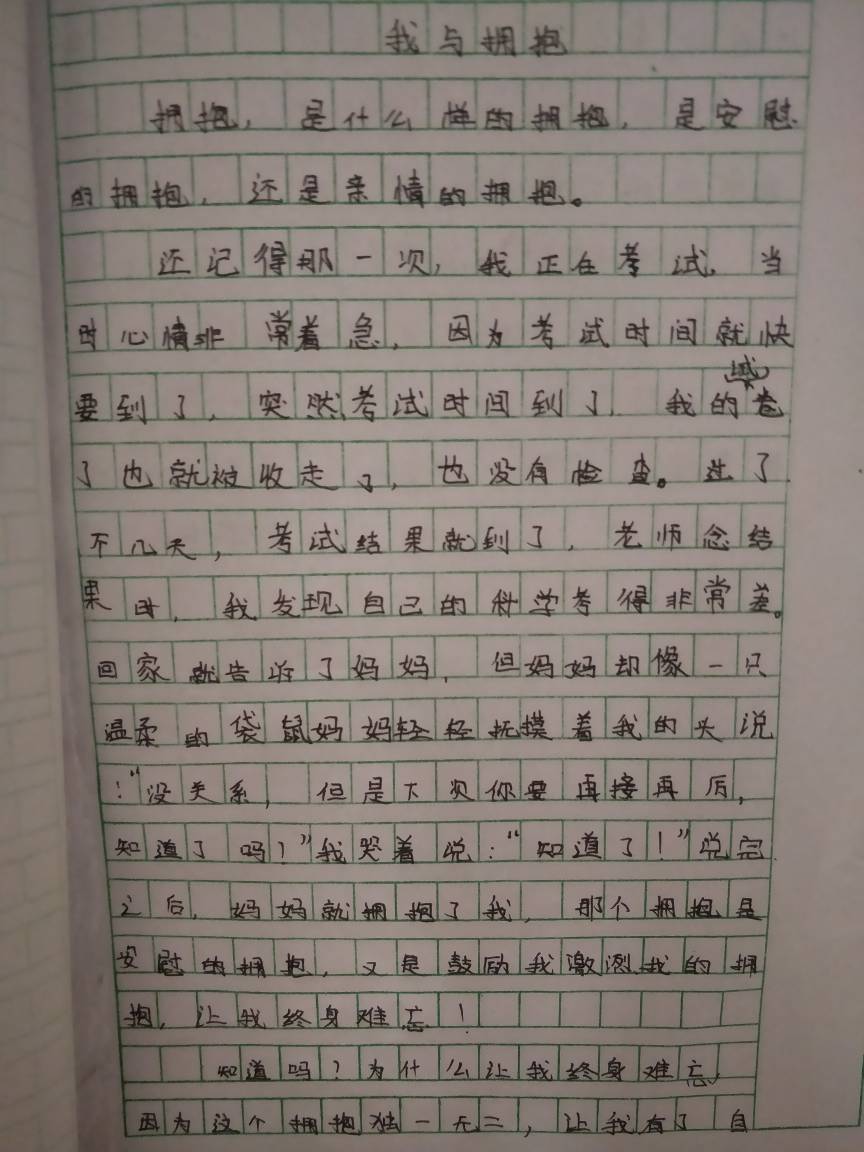 我与拥抱
拥抱，是什么样的拥抱，是安慰
的拥抱，还是亲情的拥抱。
还记得那一次，我正在考试，当
时心情非常着急，因为考试时间就快
要到了，突然考试时间到了，我的卷
了也就被收走了，也没有检查。过了
不几天，考试结果就到了，老师念结
果时，我发现自己的科学考得非常差。
回家就告诉了妈妈，但妈妈却像一只
温柔的袋鼠妈妈轻轻抚摸着我的头说
：“没关系，但是下次你要再接再厉，
知道了吗？”我哭着说：“知道了！”说完
之后，妈妈就拥抱了我，那个拥抱是
安慰的拥抱，又是鼓励我激烈我的拥
抱，让我终身难忘！
知道吗？为什么让我终身难忘，
因为这个拥抱独一无二，让我有了自